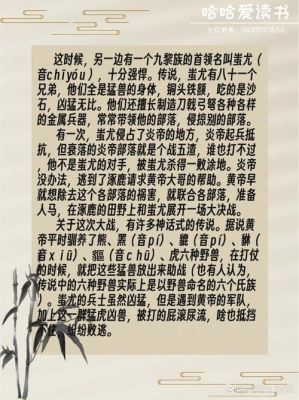 哈哈爱读书
小红书号:
这时候，另一边有一个九黎族的首领名叫蚩尤（
音chīyóu），十分强悍。传说，蚩尤有八十一个
兄弟，他们全是猛兽的身体，铜头铁额，吃的是沙
石，凶猛无比。他们还擅长制造刀戟弓弩各种各样
的金属兵器，常常带领他的部落，侵掠别的部落。
有一次，蚩尤侵占了炎帝的地方，炎帝起兵抵
抗，但衰落的炎帝部落就是个战五渣，谁也打不过
，他不是蚩尤的对手，被蚩尤杀得一败涂地。炎帝
没办法，逃到了涿鹿请求黄帝大哥的帮助。黄帝早
就想除去这个各部落的祸害，就联合各部落，准备
人马，在涿鹿的田野上和蚩尤展开一场大决战。
关于这次大战，有许多神话式的传说。据说黄
帝平时驯养了熊、罴（音pí）、貔（音pí）、貅（
音xiū）、貙（音chū）、虎六种野兽，在打仗
的时候，就把这些猛兽放出来助战（也有人认为，
传说中的六种野兽实际上是以野兽命名的六个氏族
）。蚩尤的兵士虽然凶猛，但是遇到黄帝的军队，
加上这一群猛虎凶兽，被打的屁滚尿流，啥也抵挡
不住，纷纷败逃。